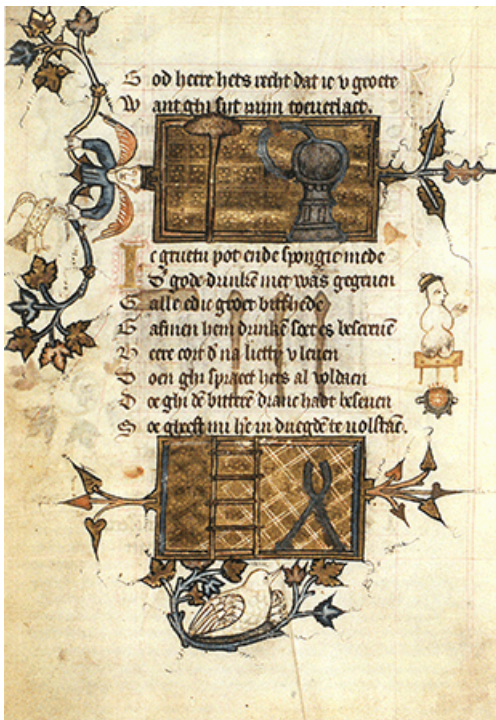 God heere hets recht dat ic v groete
Want ghi sijt mijn toeuerlaet.
Ic gruetu pot ende spongie mede
D gode drunkē met was gegeuen
G alle edic groet bitthede
G afmen hem drunkē soet es bescreuē
H eere cort d na liettu v leuen
D oen ghi spraect hets al voldaen
D oe ghi dē bitterē dranc hadt beseuen
S oe gheeft mi he in duegdē te volstaē.